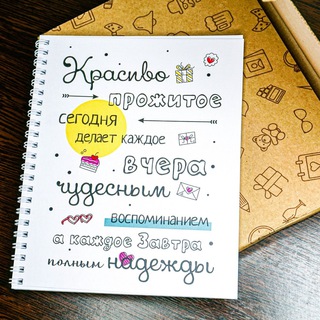 Красиво
прожитое
сегодня
делает каждое
вчера
чудесным
воспоминанием
а каждое Завтра
полным надежды